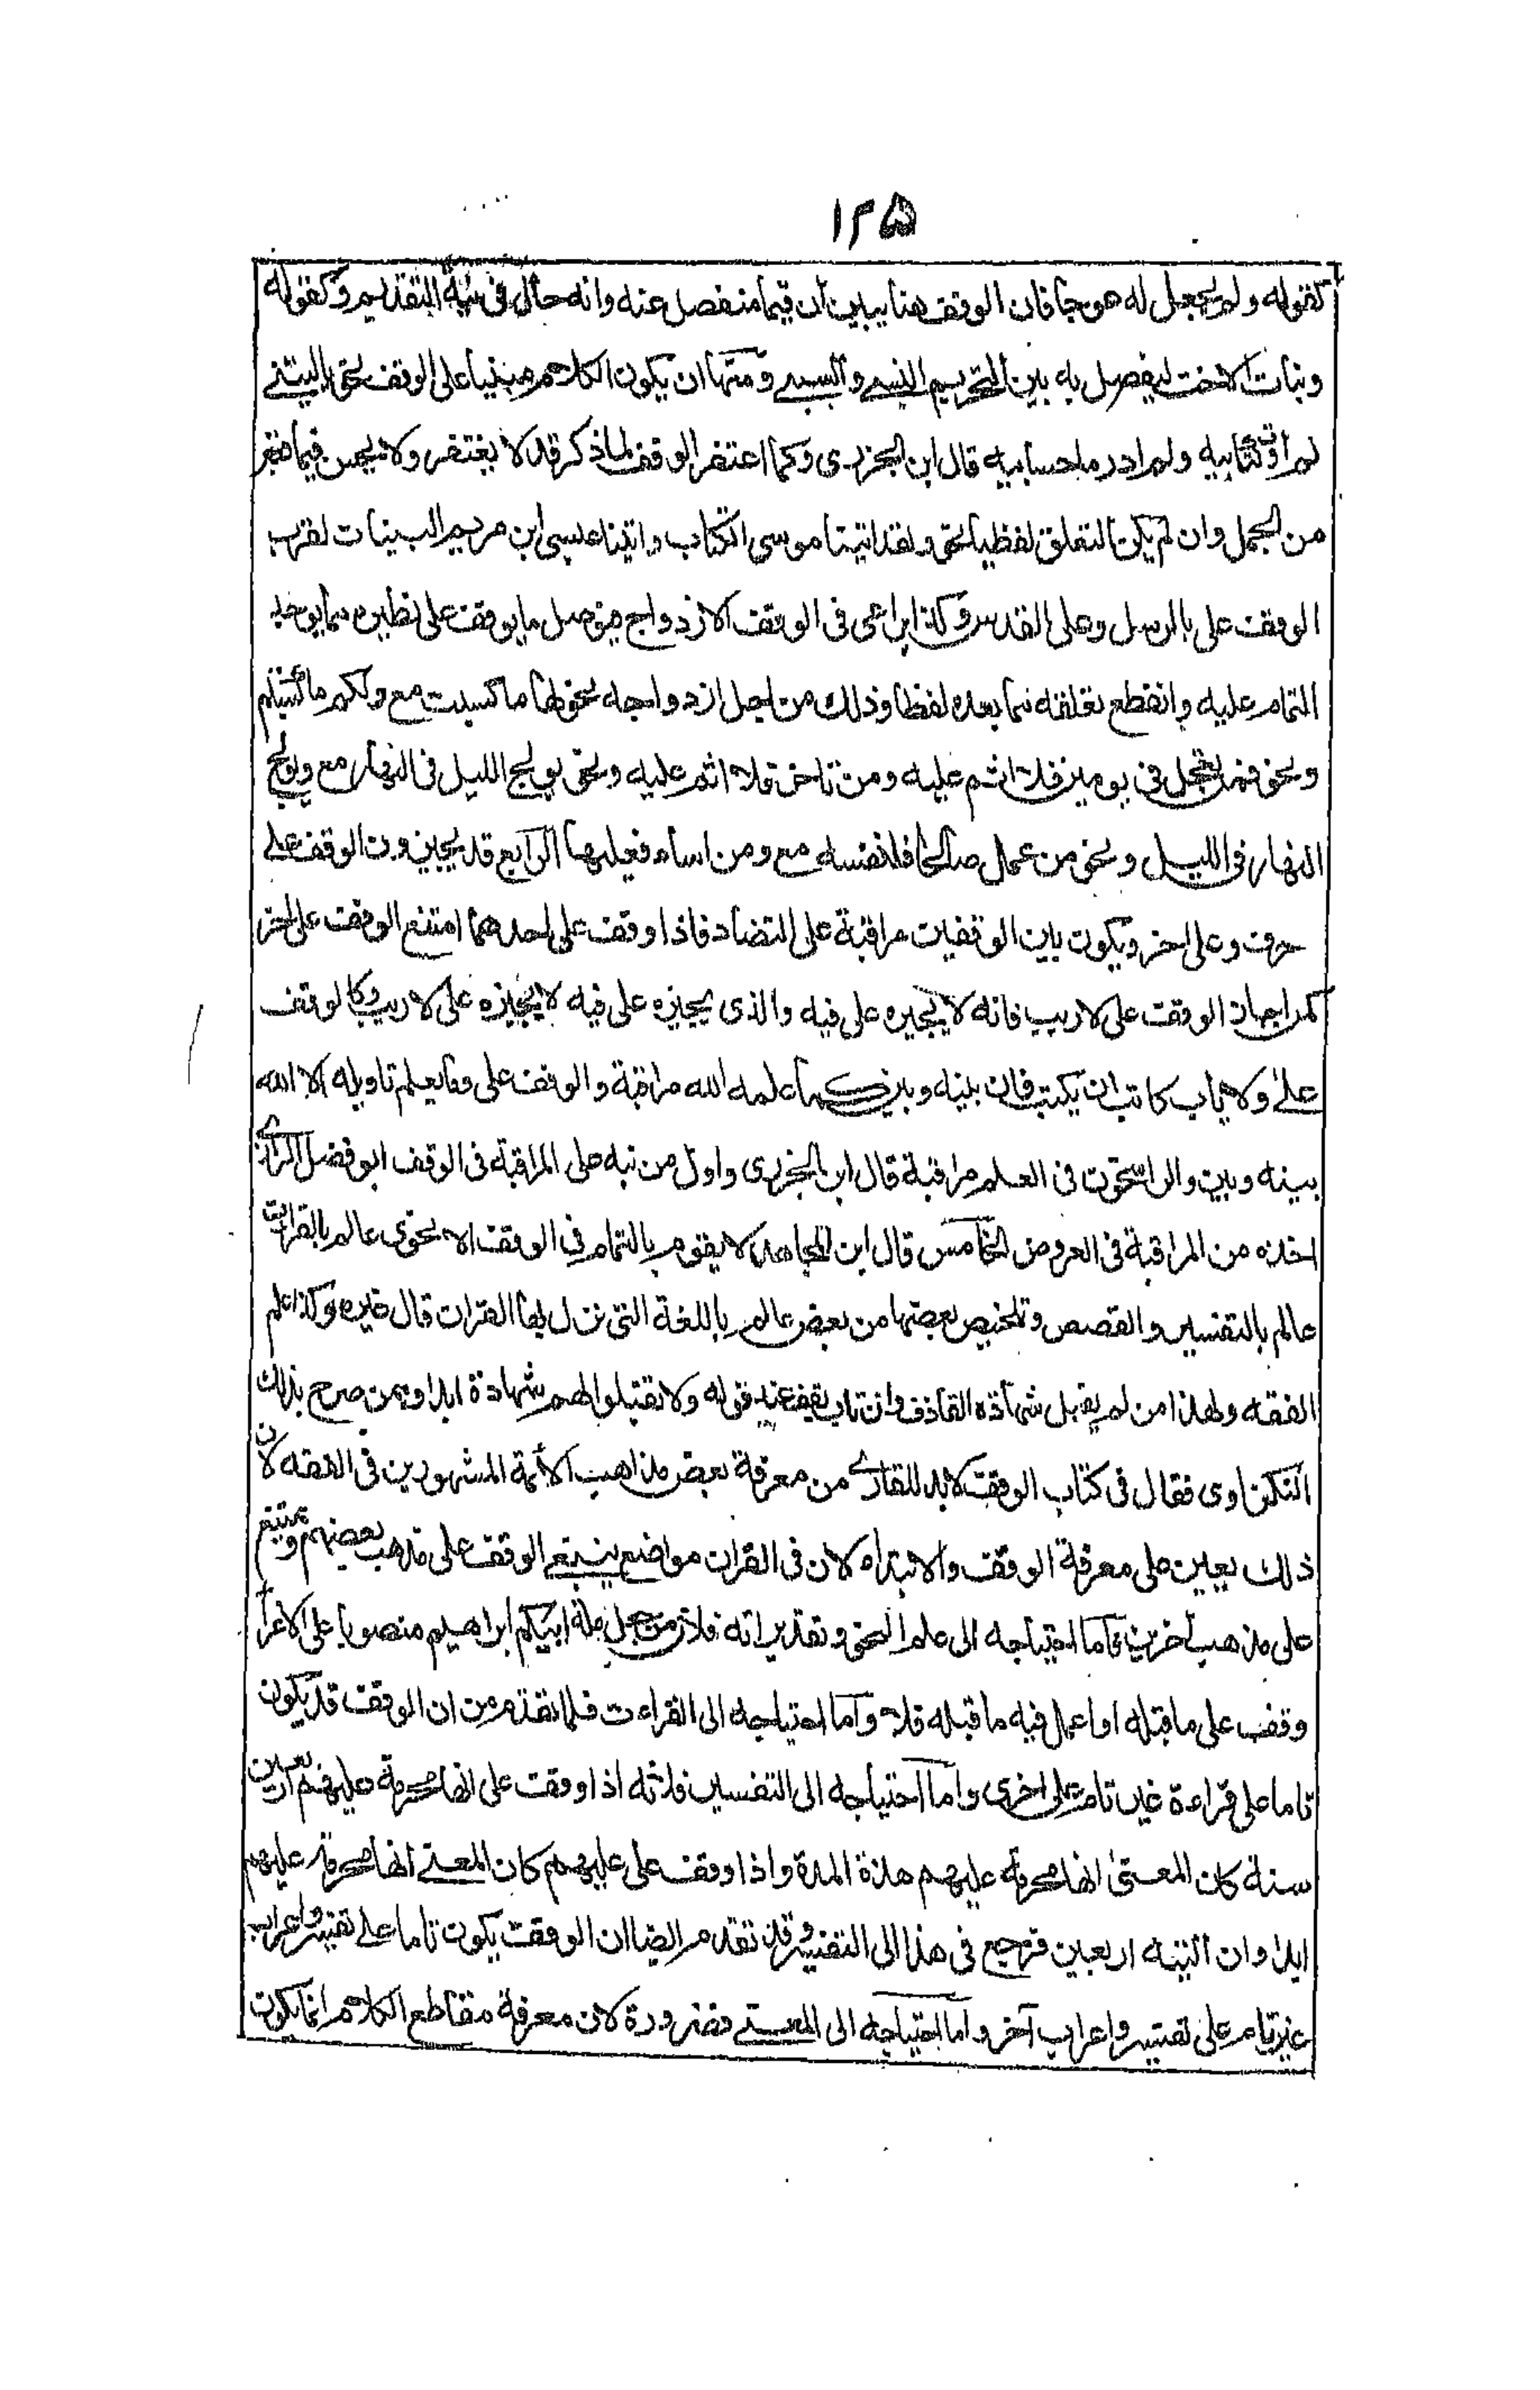 ١٢٥
كقوله ولم يجعل له عوجا فان الوقف هنا يبين ان قيما منفصل عنه وانه حال فى نية التقديم وكقوله
وبنات الاخت ليفصل به بين التحريم النسبے والسببے ومنها ان يكون الكلام مبنيا على الوقف نحو يا ليتنے
لم اوت كتابيه ولم ادر ما حسابيه قال ابن الجزرى وكما اغتفر الوقف لما ذكر قد لا يغتفر ولا يحسن فيما قصر
من الجمل وان لم يكن التعلق لفظيا نحو ولقد اتينا موسى الكتاب واتينا عيسى ابن مريم البينات لقرب
الوقف على بالرسل وعلى القدس وكذا يراعى فى الوقف الازدواج فيوصل ما يوقف على نظيره مما يوجد
التمام عليه وانقطع تعلقه بما بعده لفظا وذلك من اجل ازدواجه نحو لها ما كسبت مع ولكم ما كسبتم
ونحو فمن تعجل فى يومين فلا اثم عليه ومن تاخر فلا اثم عليه ونحو يولج الليل فى النهار مع ويولج
النهار فى الليل ونحو من عمل صالحا فلنفسه مع ومن اساء فعليها الرابع قد يجيزون الوقف علے
حرف وعلى اخر ويكون بين الوقفين مراقبة على التضاد فاذا وقف على احدهما امتنع الوقف على اخر
كمن اجاز الوقف على لا ريب فانه لا يجيزه على فيه والذى يجيزه على فيه لا يجيزه على لا ريب وكالوقف
علے ولا ياب كاتب ان يكتب فان بينه وبين كما علمه الله مراقبة والوقف على وما يعلم تاويله الا الله
بينه وبين والراسخون فى العلم مراقبة قال ابن الجزرى واول من نبه على المراقبة فى الوقف ابو فضل الرازے
اخذه من المراقبة فى العروض الخامس قال ابن المجاهد لا يقوم بالتمام فى الوقف الا نحوى عالم بالقراءت
عالم بالتفسير والقصص وتلخيص بعضها من بعض عالم باللغة التى نزل بها القران قال غيره وكذا علم
الفقه ولهذا من لم يقبل شهادة القاذف وان تاب يقف عند قوله ولا تقبلوا لهم شهادة ابدا وممن صرح بذلك
النكزاوى فقال فى كتاب الوقف لا بد للقارے من معرفة بعض مذاهب الأئمة المشهورين فى الفقه لان
ذلك يعين على معرفة الوقف والابتداء لان فى القران مواضع ينبغے الوقف على مذهب بعضهم ويمتنع
على مذهب اخرين فاما احتياجه الى علم النحو وتقديراته فلان من جعل ملة ابيكم ابراهيم منصوبا على الاغراء
وقف على ما قبله اما اعمل فيه ما قبله فلا واما احتياجه الى القراءت فلما تقدم من ان الوقف قد يكون
تاما على قراءة غير تام على اخرى واما احتياجه الى التفسير فلانه اذا وقف على انها محرمة عليهم اربعين
سنة كان المعنى انها محرمة عليهم هذة المدة واذا وقف على عليهم كان المعنے انها محرمة عليهم
ابدا وان التيه اربعين فترجع فى هذا الى التفسير وقد تقدم ايضا ان الوقف يكون تاما علے تفسير واعراب
غير تام على تفسير واعراب آخر واما احتياجه الى المعنے فضرورة لان معرفة مقاطع الكلام انما تكون